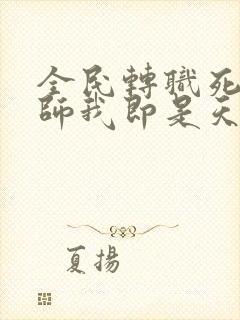 全民轉職死
師我即是天
夏揚